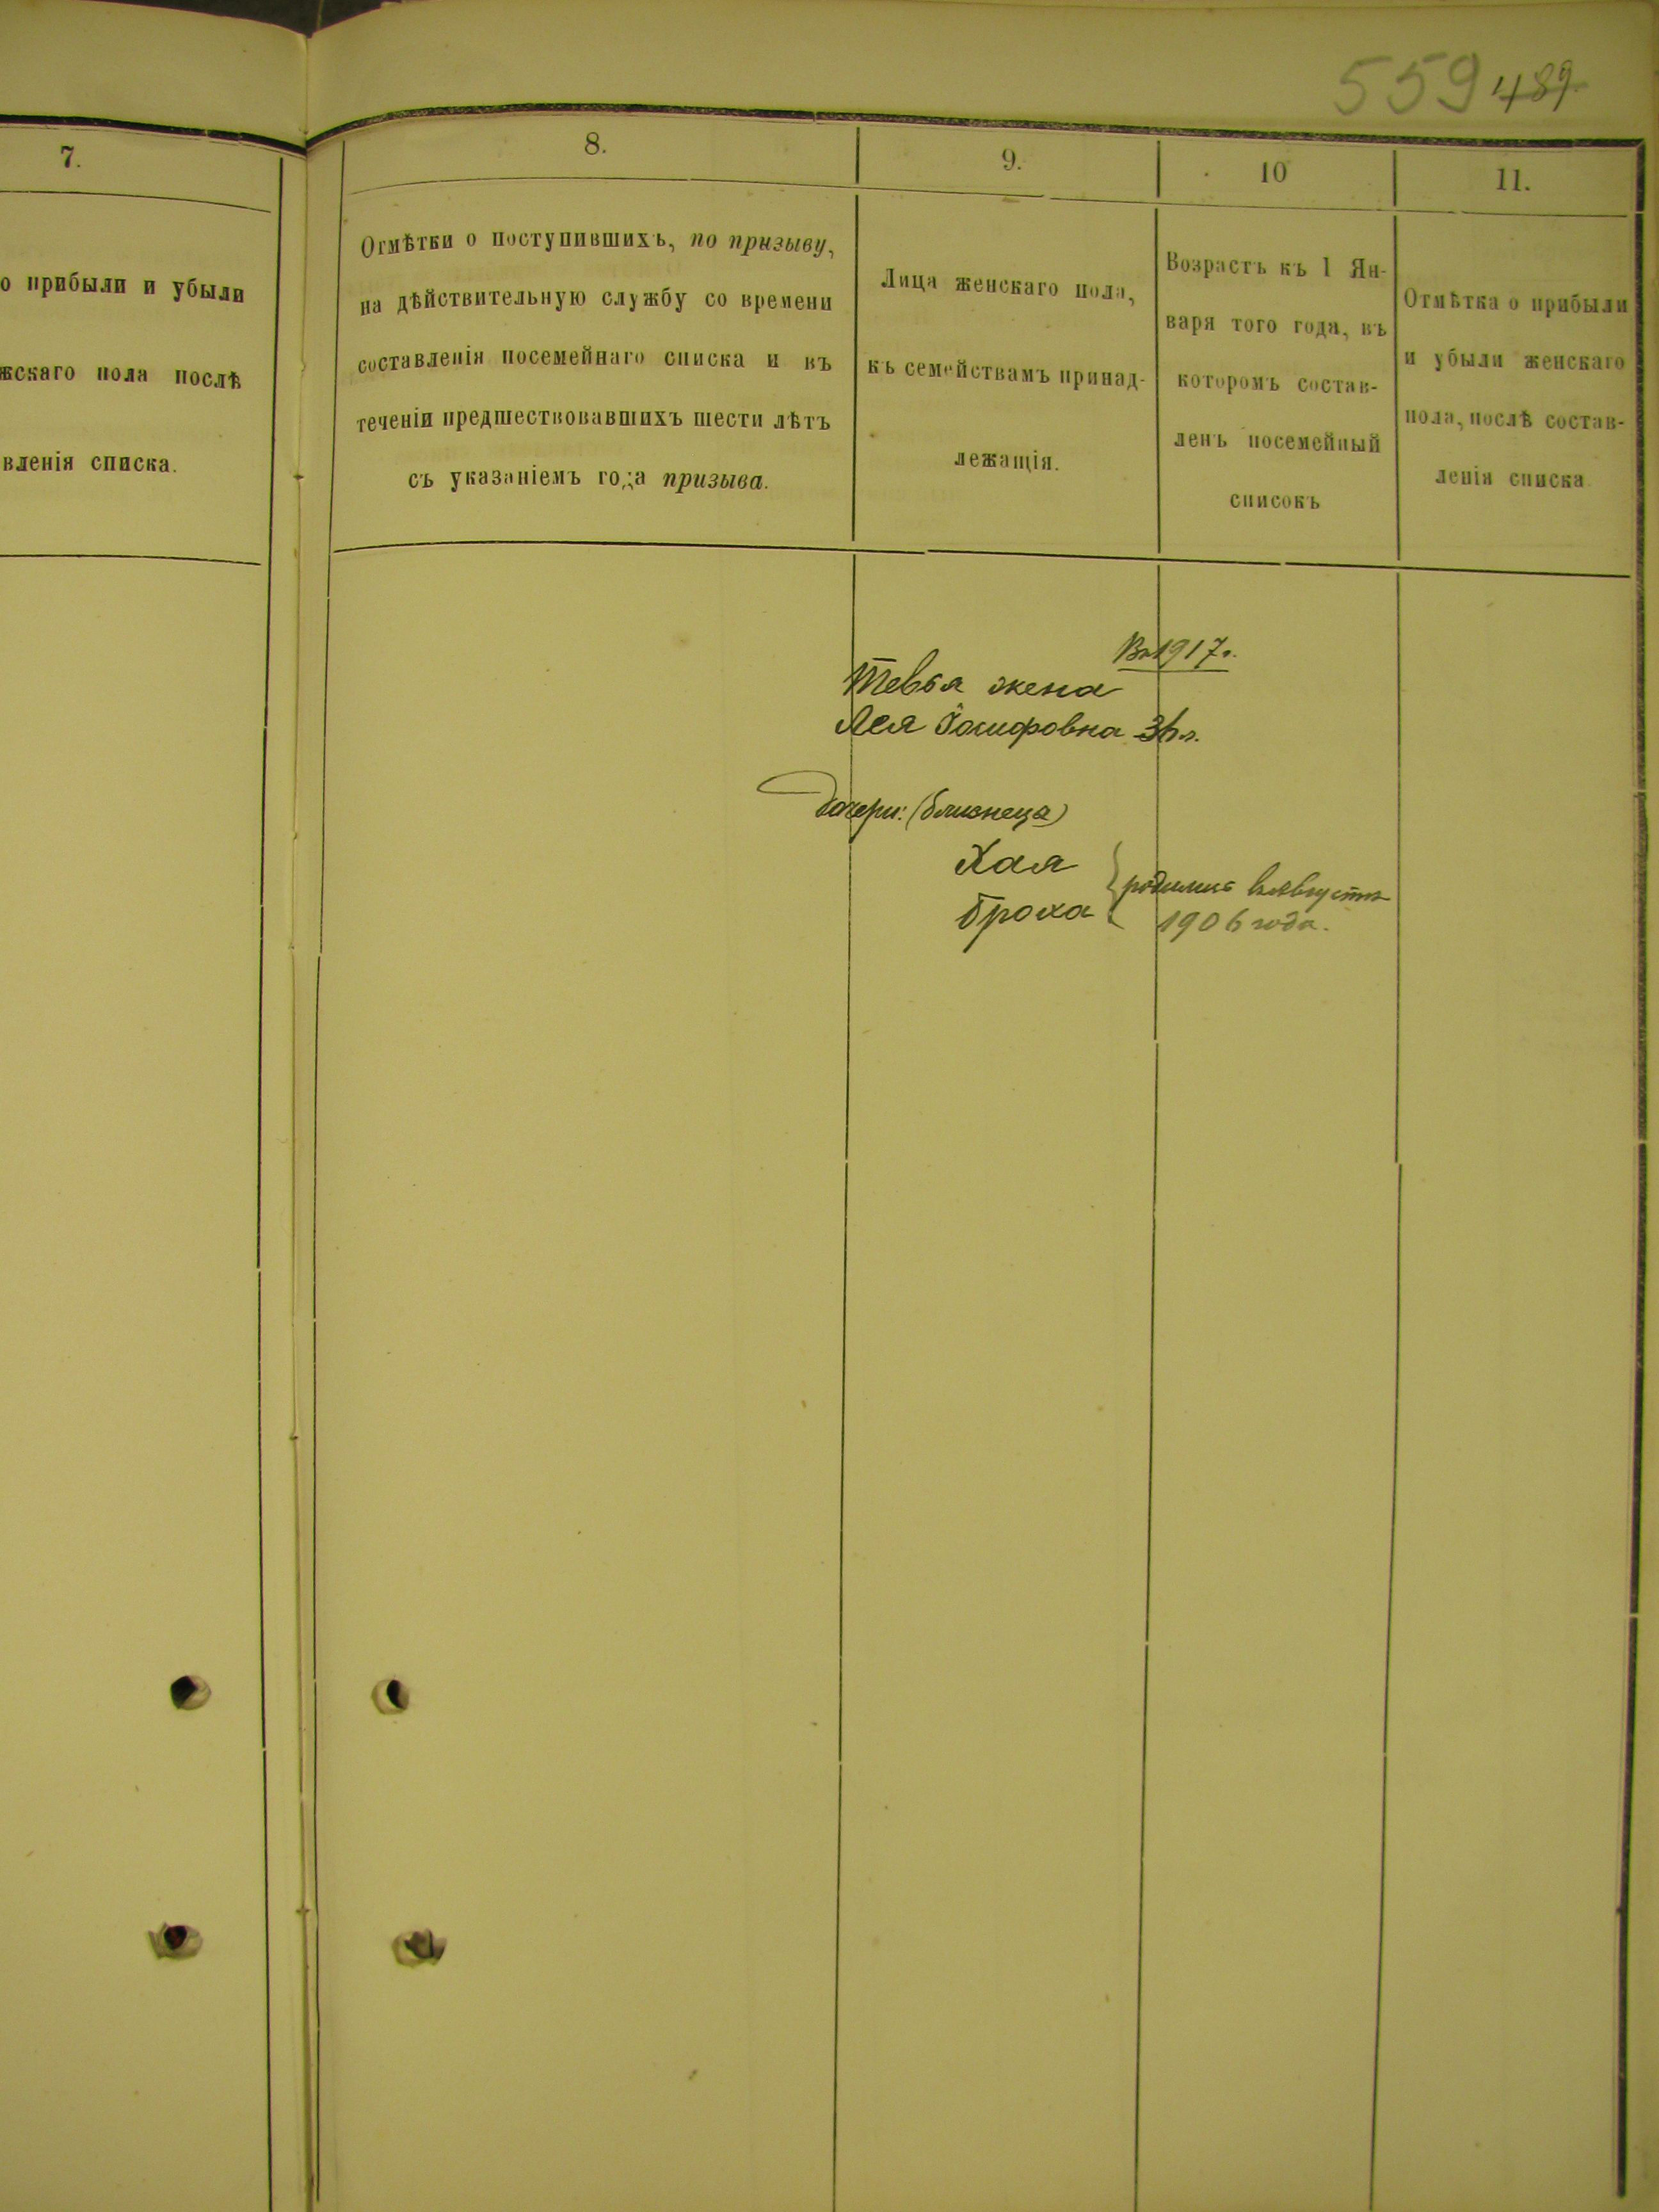 559 489
7.
о прибыли и убыли
жскаго пола послѣ
вленія списка.
8.
Отмѣтки о поступившихъ, по призыву,
на дѣйствительную службу со времени
составленія посемейнаго списка и въ
теченіи предшествовавшихъ шести лѣтъ
съ указаніемъ года призыва.
9.
Лица женскаго пола,
къ семействамъ принад-
лежащія.
10
Возрастъ къ 1 Ян-
варя того года, въ
которомъ состав-
ленъ посемейный
списокъ
11.
Отмѣтка о прибыли
и убыли женскаго
пола, послѣ состав-
ленія списка
Въ 1917 г.
Тевья жена
Лея Іосифовна 36 л.
Дочери: (близнеца)
Хая
Броха
родились въ Августѣ
1906 года.